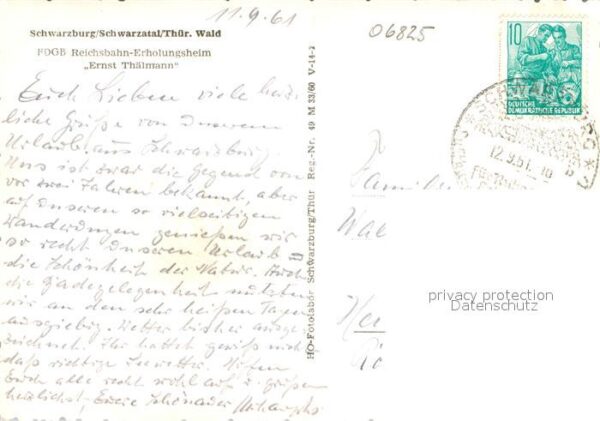 11.9.61
06825
Schwarzburg/Schwarzatal/Thür. Wald
FDGB Reichsbahn-Erholungsheim
„Ernst Thälmann"
Euch Lieben viele herz-
liche Grüße von unserem
Urlaub aus Schwarzburg.
Uns ist zwar die Gegend von
vor zwei Jahren bekannt, aber
auf unseren so vielseitigen
Wanderungen genießen wir
so recht unseren Urlaub =
die Schönheit der Natur. Auch
die Badegelegenheit nutzten
wir an den sehr heißen Tagen
ausgiebig. Wetter bisher ausge-
zeichnet. Ihr hattet gewiß auch
das richtige Hoffen
Euch alle recht wohl auf u. grüßen
herzlichst, Eure
HO-Fotolabor Schwarzburg/Thür Reg.-Nr. 49 M 33/60 V-14-1
10
DEUTSCHE
DEMOKRATISCHE REPUBLIK
12.9.61
Familie
Wal
Her
privacy protection
Datenschutz